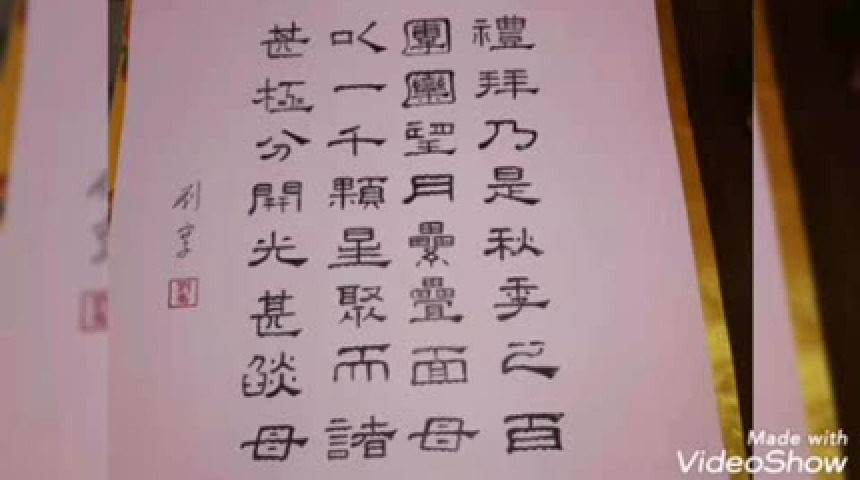 禮拜乃是秋季之百
團圞望月纍疊面母
以一千顆星聚而諸
甚極分開光甚燄母
Made with
VideoShow